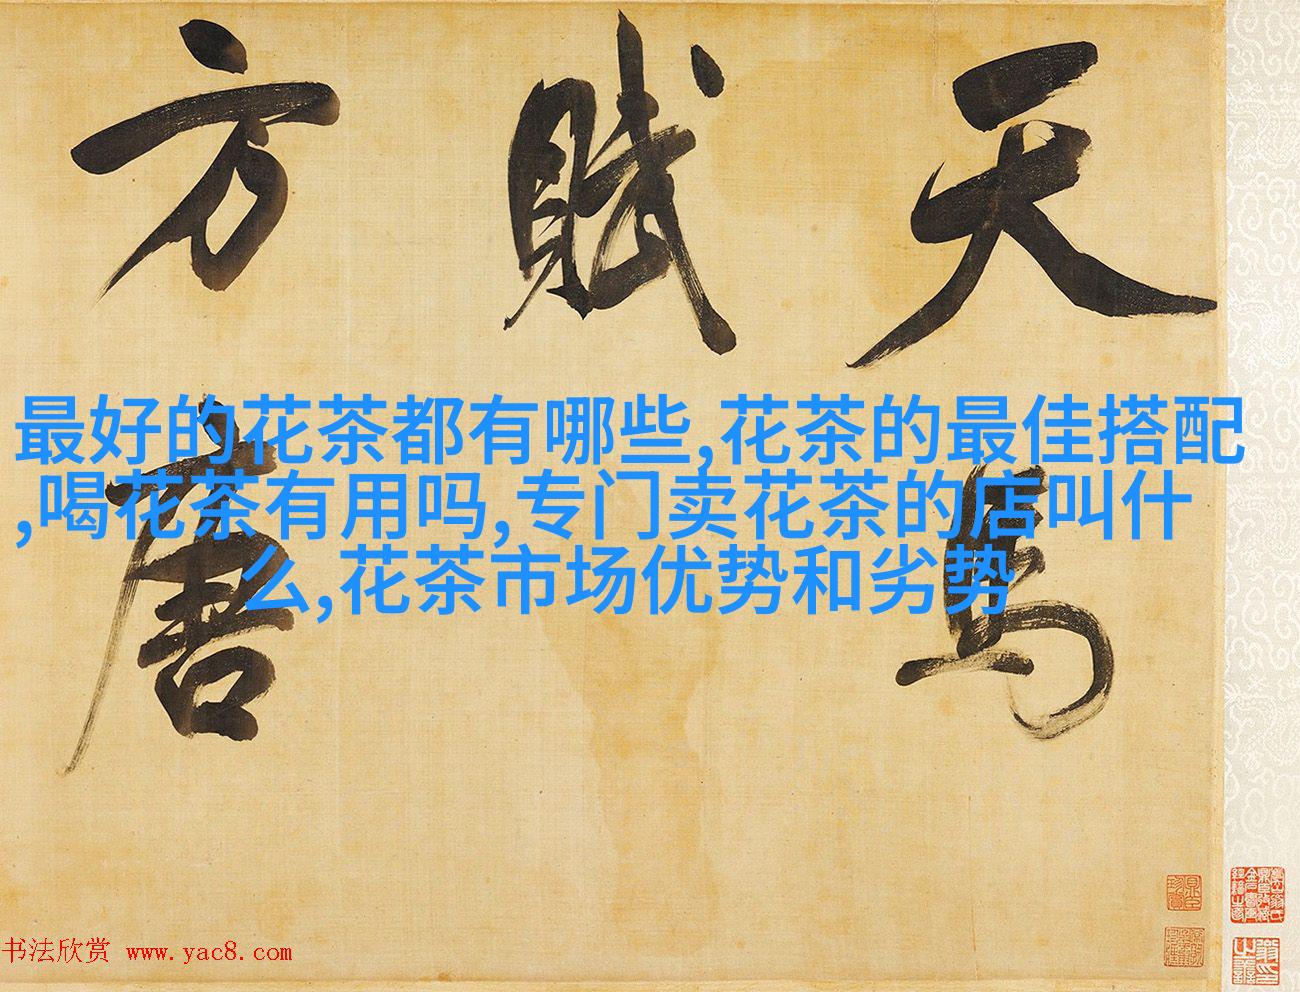 天馬
賦
方唐
最好的花茶都有哪些,花茶的最佳搭配
,喝花茶有用吗,专门卖花茶的店叫什
么,花茶市场优势和劣势
书法欣赏 www.yac8.com